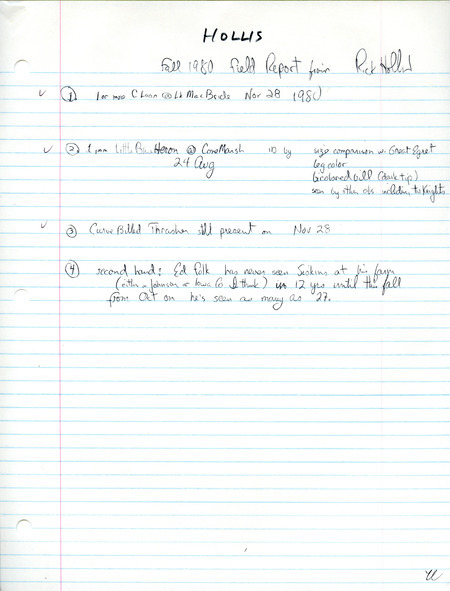 HOLLIS
Fall 1980 Field Report from Rick Hollis
✓ ① 1 or two C Loon @ Lk MacBride Nov 28 1980
✓ ② 1 imm Little Blue Heron @ Cone Marsh ID by size comparison w. Great Egret
24 Aug leg color
bicolored bill (dark tip)
seen by other obs including the Knights
✓ ③ Curve Billed Thrasher still present on Nov 28
④ second hand: Ed Folk has never seen Siskins at his farm
(either in Johnson or Iowa Co I think) in 12 yrs until this fall
from Oct on he's seen as many as 27.